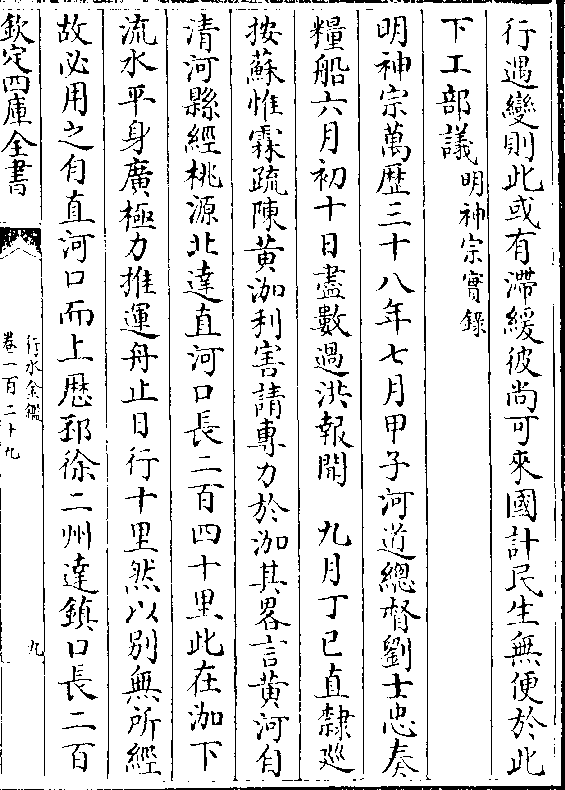 行遇變則此或有滯緩彼尚可來國計民生無便於此
下工部議明神宗實錄
明神宗萬歷三十八年七月甲子河道總督劉士忠奏
糧船六月初十日盡數過洪報聞　九月丁巳直隸廵
按蘇惟霖疏陳黄泇利害請專力於泇其畧言黄河自
清河縣經桃源北達直河口長二百四十里此在泇下
流水平身廣極力推運舟止日行十里然以別無所經
故必用之自直河口而上歷邳徐二州達鎮口長二百
欽定四庫全書
行水金鑑
卷一百二十九
九